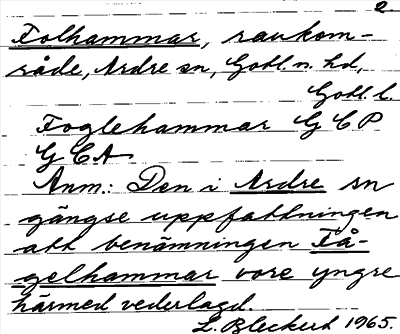 2.
Folhammar, raukom-
råde, Ardre sn, Gotl. n. hd,
Gotl. l.
Foglehammar G C P
G C A
Anm.: Den i Ardre sn
gängse uppfattningen
att benämningen Få-
gelhammar vore yngre
härmed vederlagd.
L. Bleckert 1965.